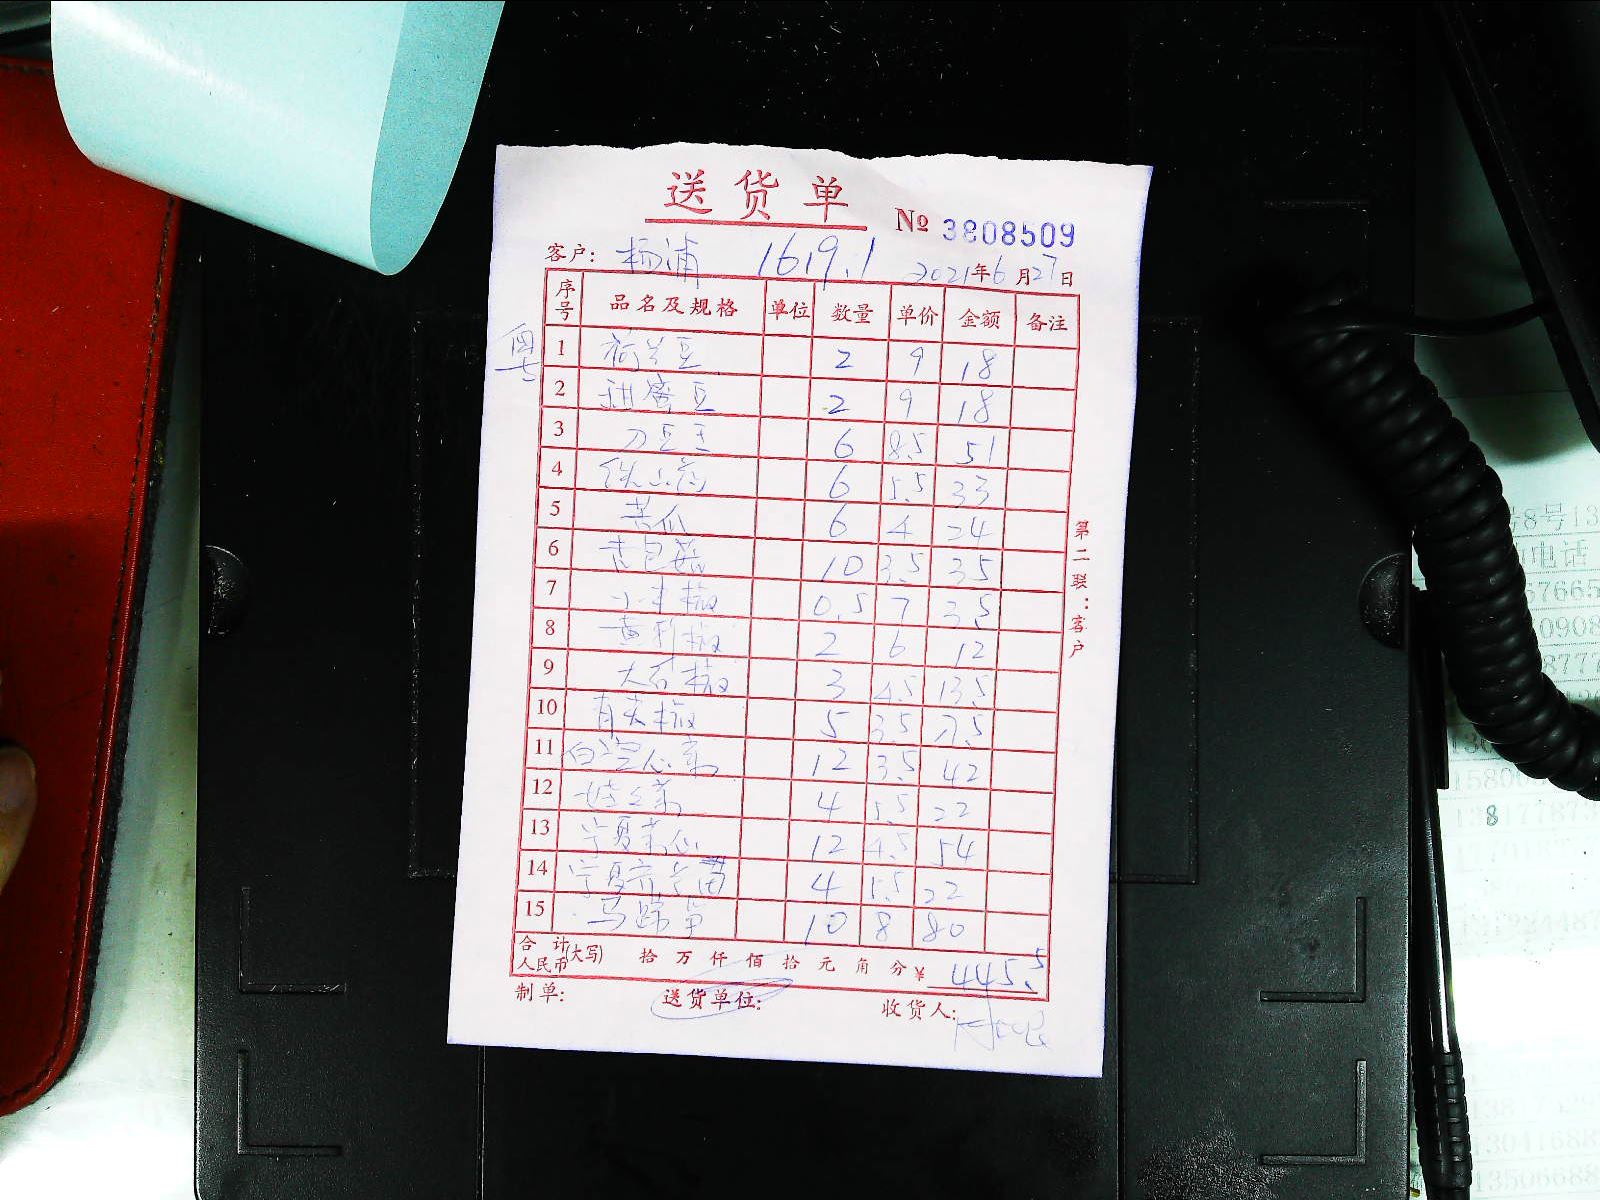 送货单
№ 3808509
客户: 杨浦 1619.1 2021年6月27日
序号 品名及规格 单位 数量 单价 金额 备注
1 荷兰豆 2 9 18
2 甜蜜豆 2 9 18
3 刀豆王 6 8.5 51
4 铁山药 6 5.5 33
5 苦瓜 6 4 24
6 10 3.5 35
7 小米椒 0.5 7 3.5
8 黄彩椒 2 6 12
9 大青椒 3 4.5 13.5
10 青尖椒 5 3.5 17.5
11 白空心菜 12 3.5 42
12 娃娃菜 4 5.5 22
13 宁夏菜心 12 4.5 54
14 宁夏芥兰苗 4 5.5 22
15 马蹄笋 10 8 80
合计人民币(大写) 拾 万 仟 佰 拾 元 角 分 ¥ 445.5
制单: 送货单位: 收货人:
第二联:客户
号8号13
电话
57665
0908
8777
138177873